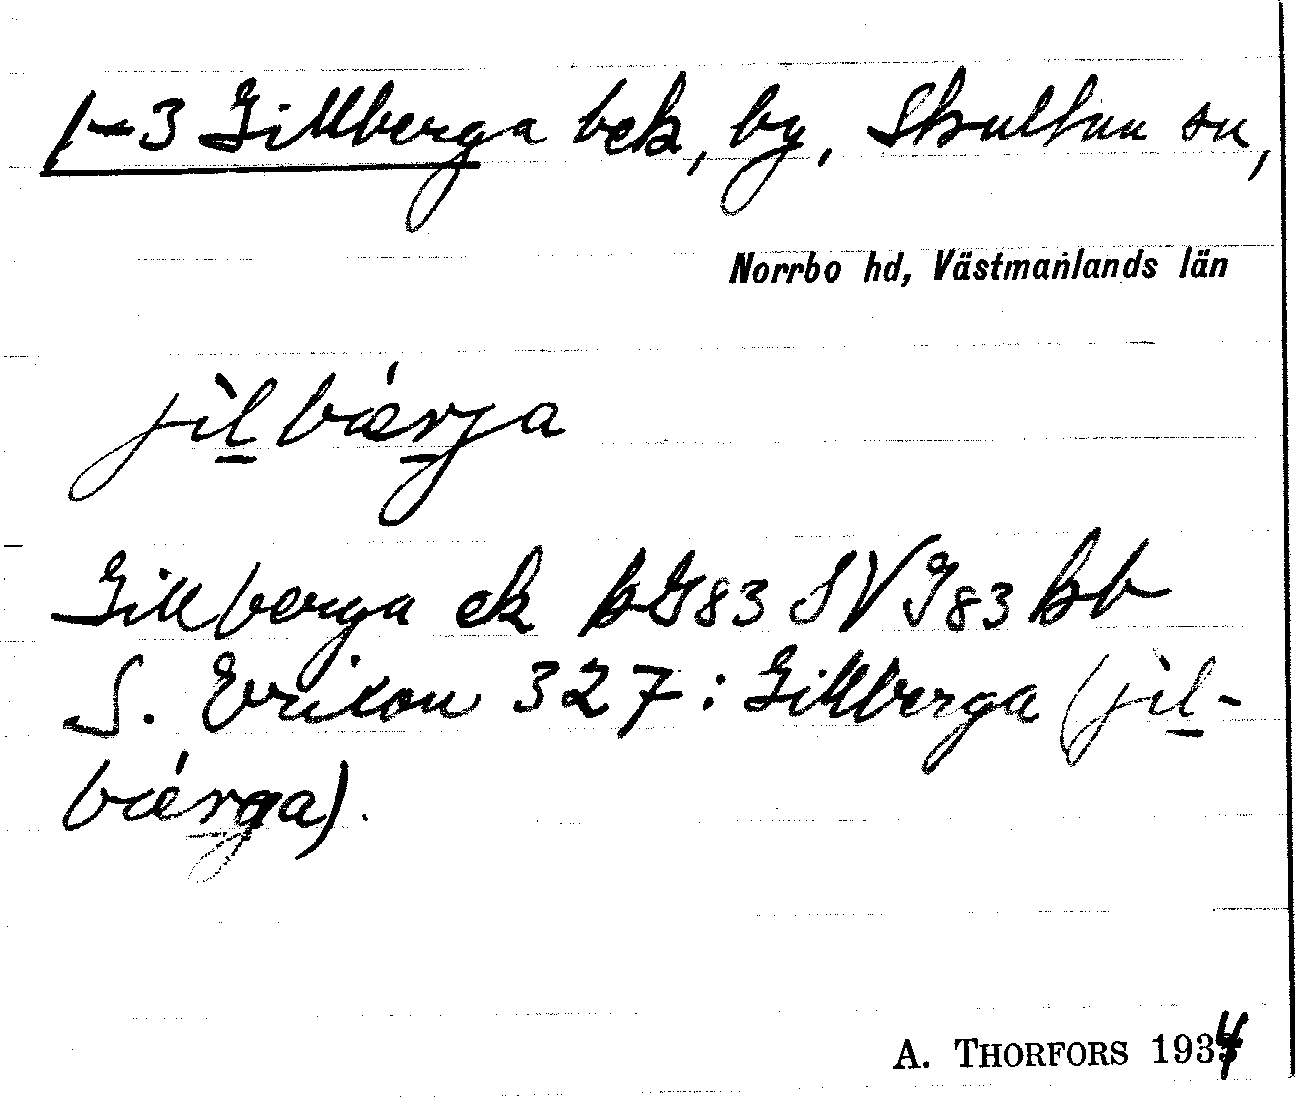 1-3 Gillberga bek, by, Skultuna sn,
Norrbo hd, Västmanlands län
jìlbǽrja
Gillberga ek kG83 SVG83 kb
S. Erikson 327: Gillberga (jìl-
bǽrga).
A. THORFORS 1934